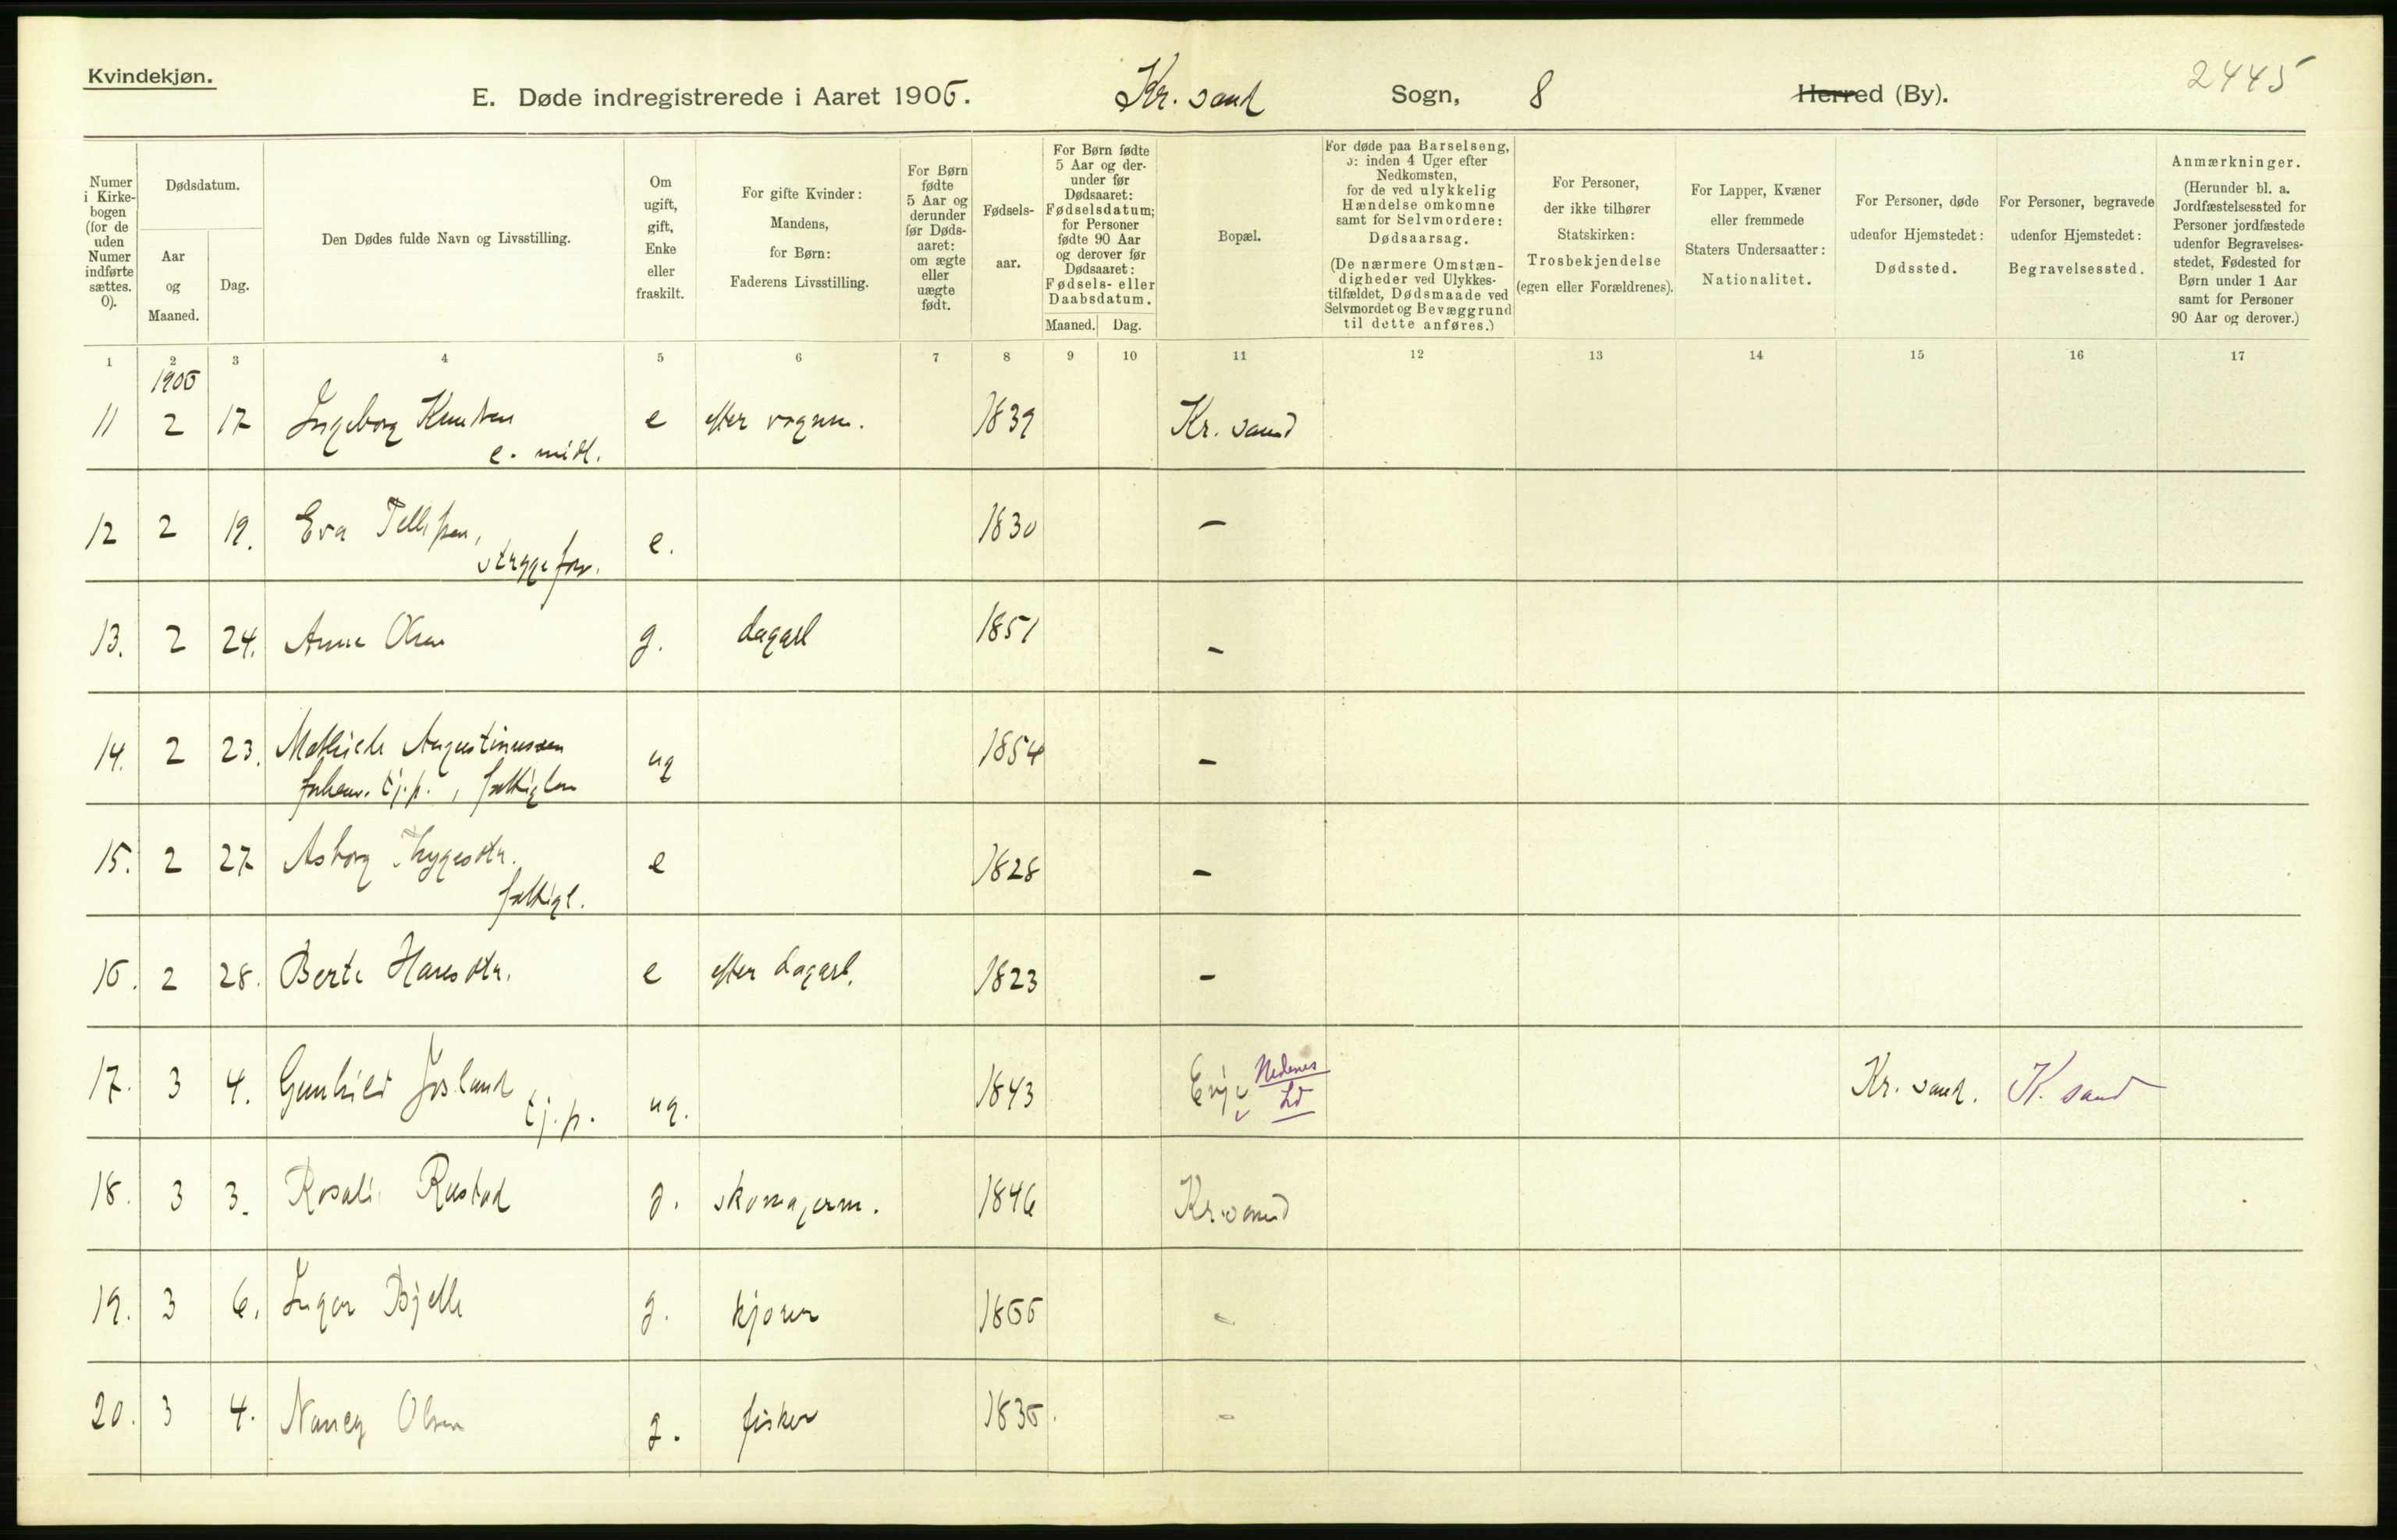 Kvindekjøn.
E. Døde indregistrerede i Aaret 1906. Kr. sand Sogn, 8 Herred (By).
2445
Numer i Kirkebogen (for de uden Numer indførte sættes. 0).
Dødsdatum.
Aar og Maaned.
Dag.
Den Dødes fulde Navn og Livsstilling.
Om ugift, gift, Enke eller fraskilt.
For gifte Kvinder: Mandens, for Børn: Faderens Livsstilling.
For Børn fødte 5 Aar og derunder før Dødsaaret: om ægte eller uægte født.
Fødselsaar.
For Børn fødte 5 Aar og derunder før Dødsaaret: Fødselsdatum; for Personer fødte 90 Aar og derover før Dødsaaret: Fødsels- eller Daabsdatum.
Maaned. Dag.
Bopæl.
For døde paa Barselseng, ɔ: inden 4 Uger efter Nedkomsten, for de ved ulykkelig Hændelse omkomne samt for Selvmordere: Dødsaarsag. (De nærmere Omstændigheder ved Ulykkestilfældet, Dødsmaade ved Selvmordet og Bevæggrund til dette anføres.)
For Personer, der ikke tilhører Statskirken: Trosbekjendelse (egen eller Forældrenes).
For Lapper, Kvæner eller fremmede Staters Undersaatter: Nationalitet.
For Personer, døde udenfor Hjemstedet: Dødssted.
For Personer, begravede udenfor Hjemstedet: Begravelsessted.
Anmærkninger. (Herunder bl. a. Jordfæstelsessted for Personer jordfæstede udenfor Begravelsesstedet, Fødested for Børn under 1 Aar samt for Personer 90 Aar og derover.)
1 2 3 4 5 6 7 8 9 10 11 12 13 14 15 16 17
1906
11 2 17 Ingeborg Knutsen e efter vognm. 1839 Kr. sand
e. midl.
12 2 19. Eva Tellefsen, e. 1830 –
strygeforr.
13. 2 24. Anne Olsen g. dagarb 1851 –
14. 2 23. Mathilde Augustinussen ug 1854 –
forhenv. tj.p. , fattiglem
15. 2 27 Asborg Thygesdtr. e 1828 –
fattigl.
16. 2 28. Berte Hansdtr. e efter dagarb. 1823 –
17. 3 4. Gunhild Josland ug. 1843 Evje Nedenes Kr. sand. K. sand
tj.p. Ld
18. 3 3. Rosalie Rustad g. skomagerm. 1846 Kr. sand
19. 3 6. Inger Bjelle g. kjører 1866 –
20. 3 4. Nancy Olsen g. fisker 1836. –